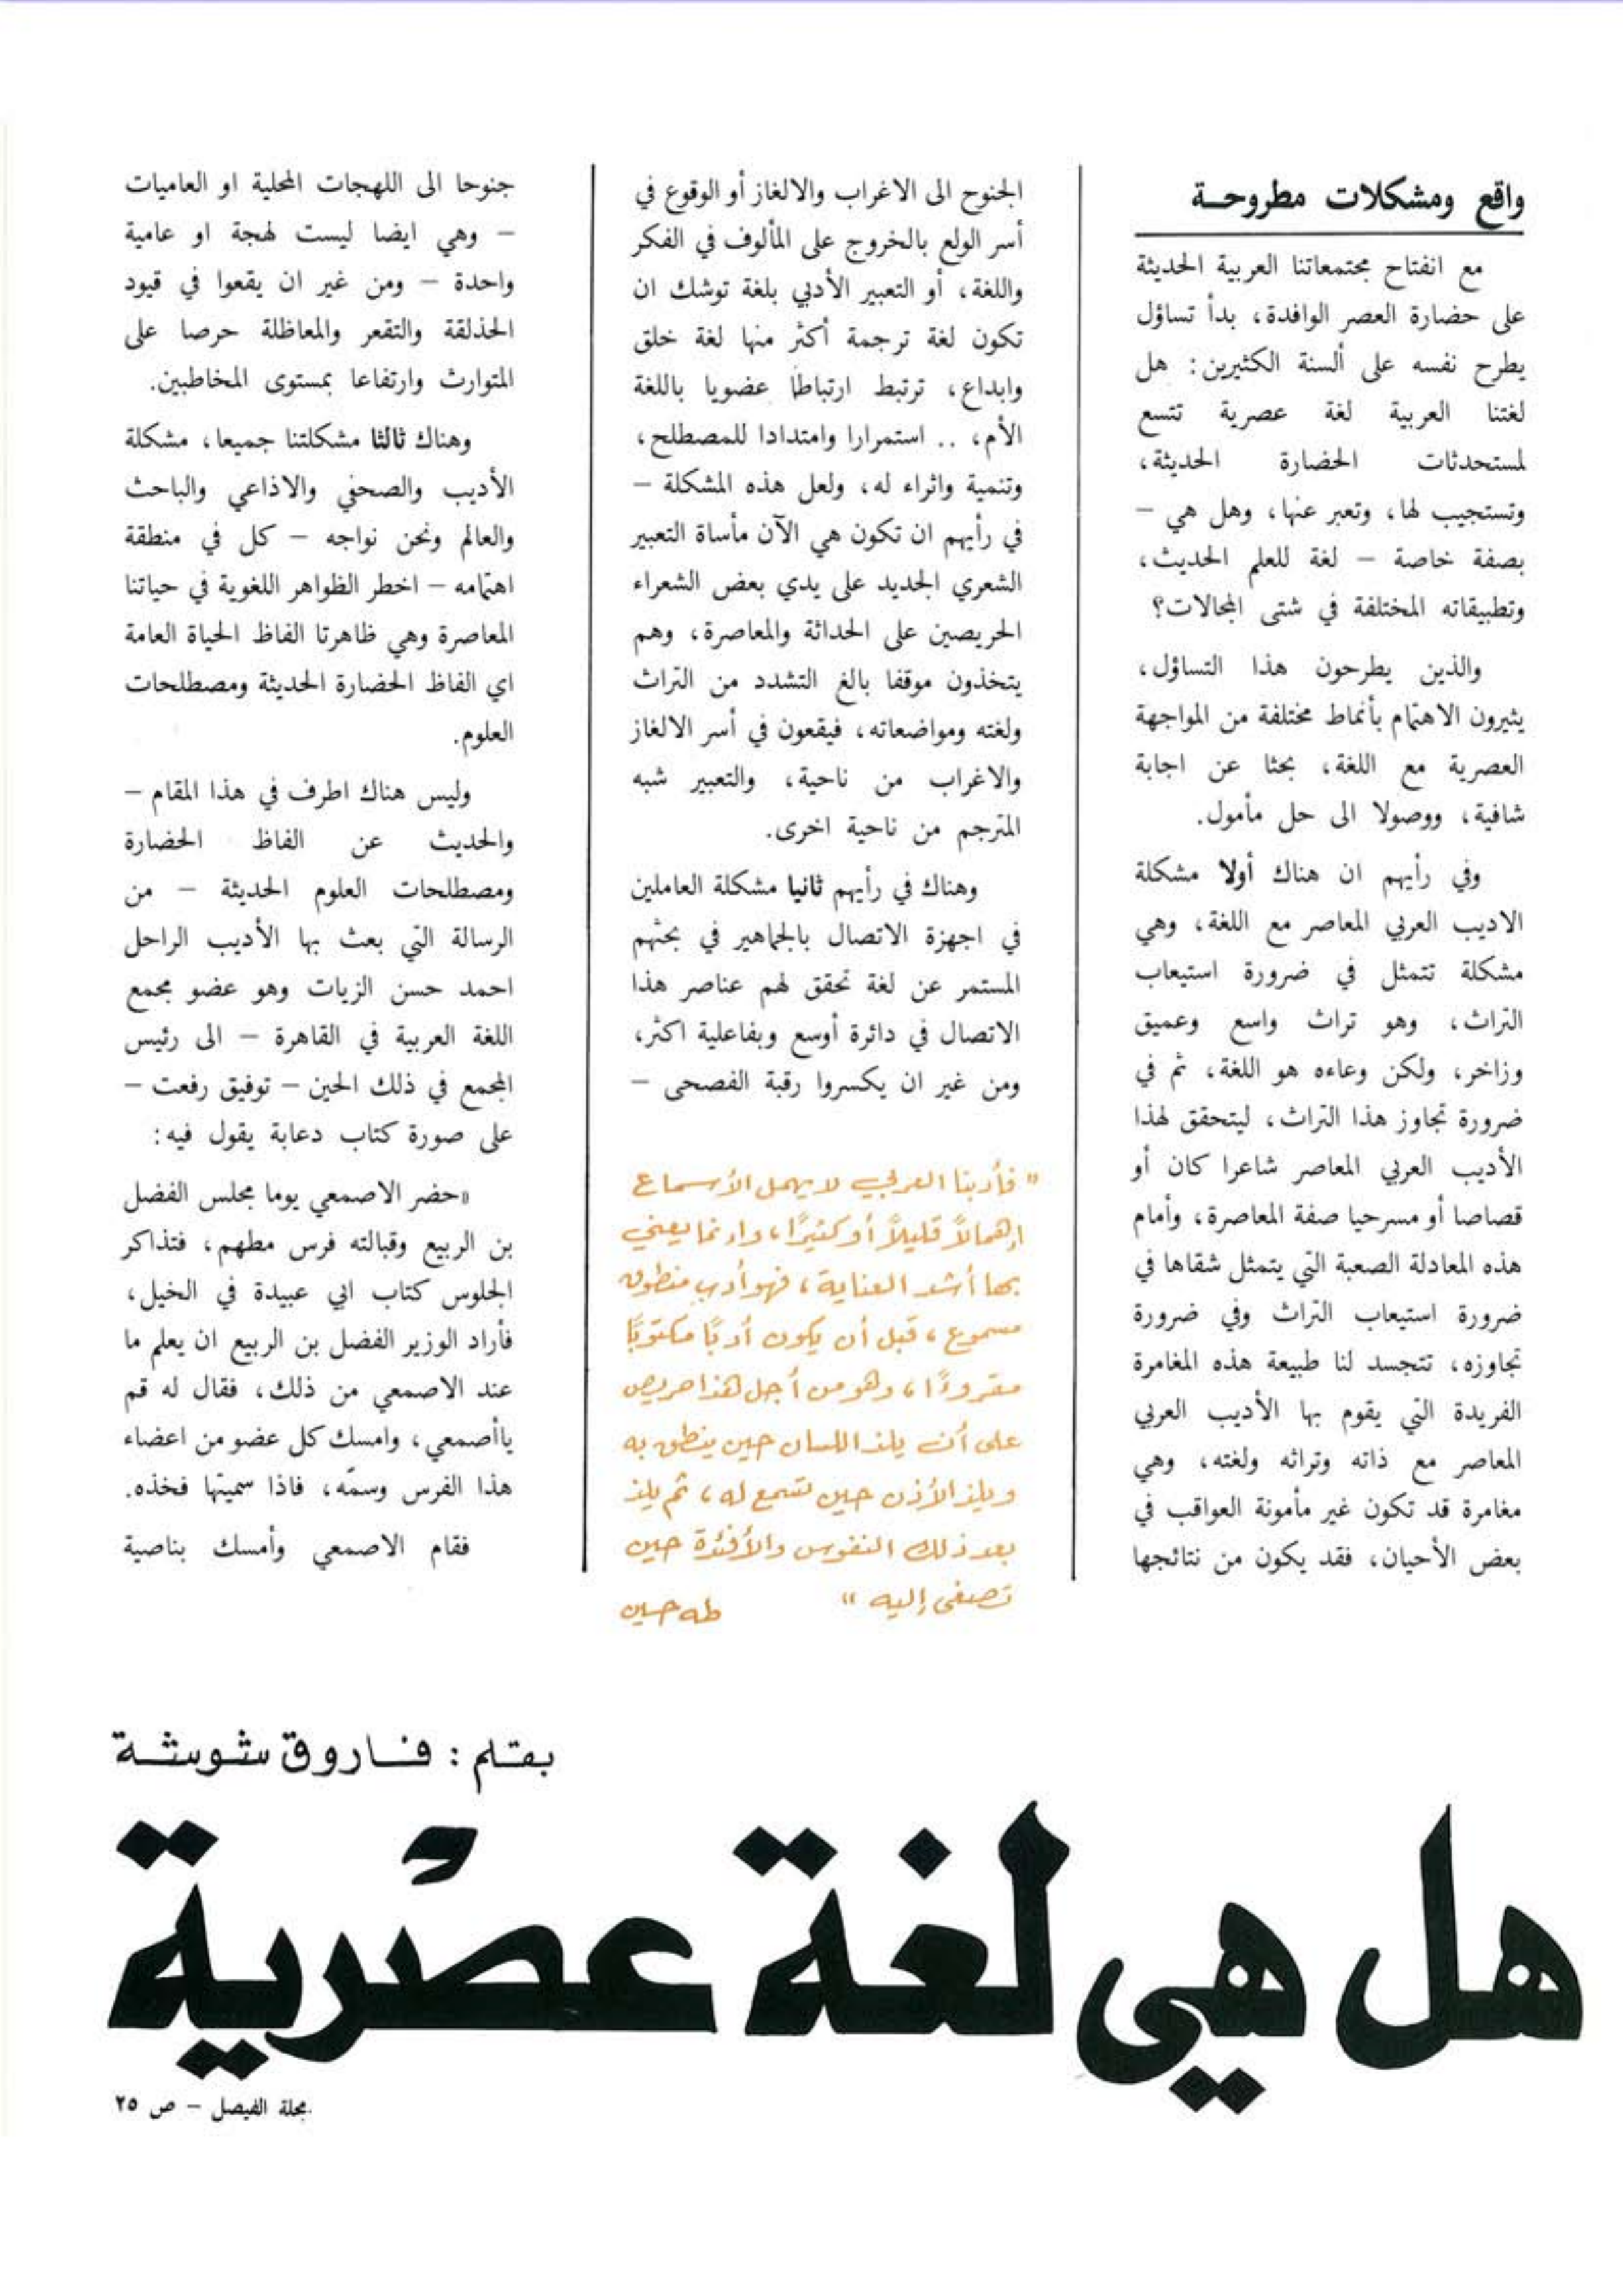 واقع ومشكلات مطروحـة
مع انفتاح مجتمعاتنا العربية الحديثة
على حضارة العصر الوافدة، بدأ تساؤل
يطرح نفسه على ألسنة الكثيرين: هل
لغتنا العربية لغة عصرية تتسع
لمستحدثات الحضارة الحديثة،
وتستجيب لها، وتعبر عنها، وهل هي –
بصفة خاصة – لغة للعلم الحديث،
وتطبيقاته المختلفة في شتى المجالات؟
والذين يطرحون هذا التساؤل،
يثيرون الاهتمام بأنماط مختلفة من المواجهة
العصرية مع اللغة، بحثا عن اجابة
شافية، ووصولا الى حل مأمول.
وفي رأيهم ان هناك أولا مشكلة
الاديب العربي المعاصر مع اللغة، وهي
مشكلة تتمثل في ضرورة استيعاب
التراث، وهو تراث واسع وعميق
وزاخر، ولكن وعاءه هو اللغة، ثم في
ضرورة تجاوز هذا التراث، ليتحقق لهذا
الأديب العربي المعاصر شاعرا كان أو
قصاصا أو مسرحيا صفة المعاصرة، وأمام
هذه المعادلة الصعبة التي يتمثل شقاها في
ضرورة استيعاب التراث وفي ضرورة
تجاوزه، تتجسد لنا طبيعة هذه المغامرة
الفريدة التي يقوم بها الأديب العربي
المعاصر مع ذاته وتراثه ولغته، وهي
مغامرة قد تكون غير مأمونة العواقب في
بعض الأحيان، فقد يكون من نتائجها
الجنوح الى الاغراب والالغاز أو الوقوع في
أسر الولع بالخروج على المألوف في الفكر
واللغة، أو التعبير الأدبي بلغة توشك ان
تكون لغة ترجمة أكثر منها لغة خلق
وابداع، ترتبط ارتباطا عضويا باللغة
الأم، .. استمرارا وامتدادا للمصطلح،
وتنمية واثراء له، ولعل هذه المشكلة –
في رأيهم ان تكون هي الآن مأساة التعبير
الشعري الجديد على يدي بعض الشعراء
الحريصين على الحداثة والمعاصرة، وهم
يتخذون موقفا بالغ التشدد من التراث
ولغته ومواضعاته، فيقعون في أسر الالغاز
والاغراب من ناحية، والتعبير شبه
المترجم من ناحية اخرى.
وهناك في رأيهم ثانيا مشكلة العاملين
في اجهزة الاتصال بالجماهير في بحثهم
المستمر عن لغة تحقق لهم عناصر هذا
الاتصال في دائرة أوسع وبفاعلية اكثر،
ومن غير ان يكسروا رقبة الفصحى –
" فأدبنا العربي لا يهمل الأسماع
إهمالاً قليلاً أو كثيرًا، وإنما يعني
بها أشد العناية، فهو أدب منطوق
مسموع، قبل أن يكون أدبًا مكتوبًا
مقروءًا، وهو من أجل هذا حريص
على أن يلذ اللسان حين ينطق به
ويلذ الأذن حين تسمع له، ثم يلذ
بعد ذلك النفوس والأفئدة حين
تصغى إليه "
طه حسين
جنوحا الى اللهجات المحلية او العاميات
– وهي ايضا ليست لهجة او عامية
واحدة – ومن غير ان يقعوا في قيود
الحذلقة والتقعر والمعاظلة حرصا على
المتوارث وارتفاعا بمستوى المخاطبين.
وهناك ثالثا مشكلتنا جميعا، مشكلة
الأديب والصحفي والاذاعي والباحث
والعالم ونحن نواجه – كل في منطقة
اهتمامه – اخطر الظواهر اللغوية في حياتنا
المعاصرة وهي ظاهرتا الفاظ الحياة العامة
اي الفاظ الحضارة الحديثة ومصطلحات
العلوم.
وليس هناك اطرف في هذا المقام –
والحديث عن الفاظ الحضارة
ومصطلحات العلوم الحديثة – من
الرسالة التي بعث بها الأديب الراحل
احمد حسن الزيات وهو عضو بمجمع
اللغة العربية في القاهرة – الى رئيس
المجمع في ذلك الحين – توفيق رفعت –
على صورة كتاب دعابة يقول فيه:
«حضر الاصمعي يوما مجلس الفضل
بن الربيع وقبالته فرس مطهم، فتذاكر
الجلوس كتاب ابي عبيدة في الخيل،
فأراد الوزير الفضل بن الربيع ان يعلم ما
عند الاصمعي من ذلك، فقال له قم
ياأصمعي، وامسك كل عضو من اعضاء
هذا الفرس وسمّه، فاذا سميتها فخذه.
فقام الاصمعي وأمسك بناصية
بقلم: فـاروق شوشـة
هل هي لغة عصْرية
مجلة الفيصل – ص ٢٥